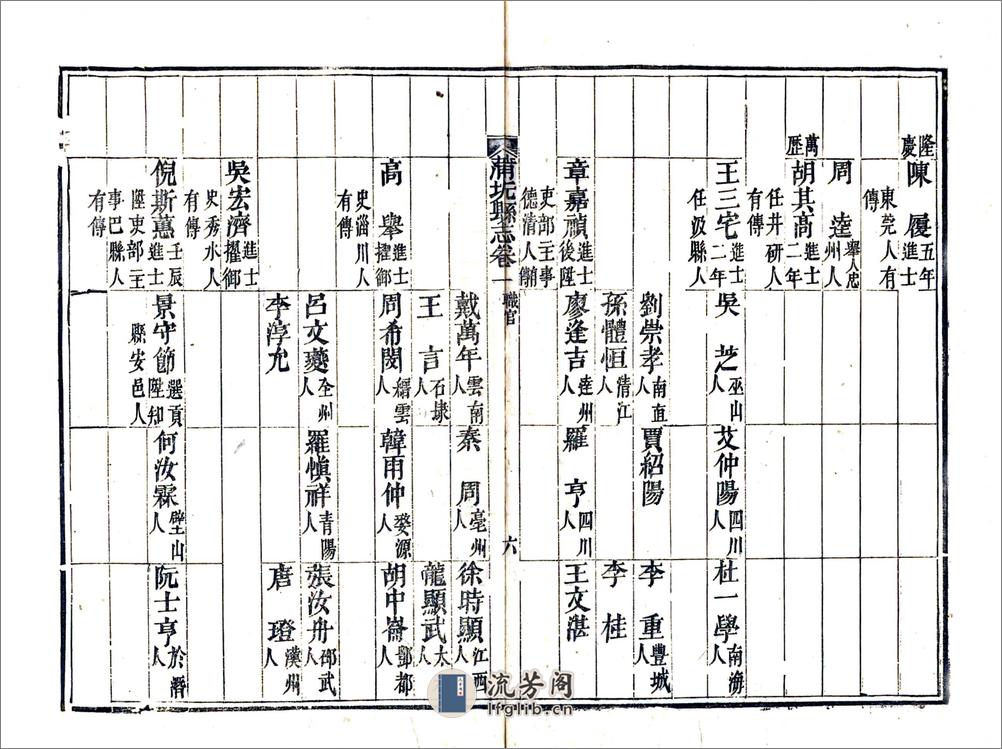 隆慶
陳履進士五年東莞人有傳
周逵舉人忠州人
萬歷
胡其高進士二年任井研人有傳
王三宅進士二年任汲縣人
吳芝巫山人
艾仲陽四川人
杜一學南海人
劉崇孝南直人
賈紹陽
李重豐城人
孫體恒清江人
李桂
章嘉禎進士後陞吏部主事德清人削
廖逢吉達州人
羅亨四川人
王文湛
蒲圻縣志卷一
職官
六
戴萬年雲南人
秦周亳州人
徐時顯江西人
王言石埭人
龍顯武太
高舉進士擢御史淄川人有傳
周希閔縉雲人
韓雨仲婺源人
胡中崙酆都人
呂文夔全州人
羅慎祥青陽人
張汝舟邵武人
李淳允
唐璒漢州人
吳宏濟進士擢御史秀水人有傳
倪斯蕙壬辰進士陞吏部主事巴縣人有傳
景守節選貢陞知縣安邑人
何汝霖壁山人
阮士亨於潛人
流芳阁
lfglib.cn